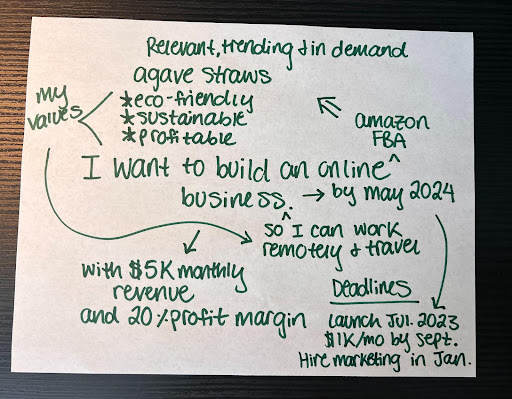 Relevant, trending & in demand
agave straws
my values
*eco-friendly
*sustainable
*profitable
amazon
FBA
I want to build an online ^
business. → by may 2024
^
so I can work
remotely & travel
with $5K monthly
revenue
and 20% profit margin
Deadlines
Launch Jul. 2023
$1K/mo by Sept.
Hire marketing in Jan.